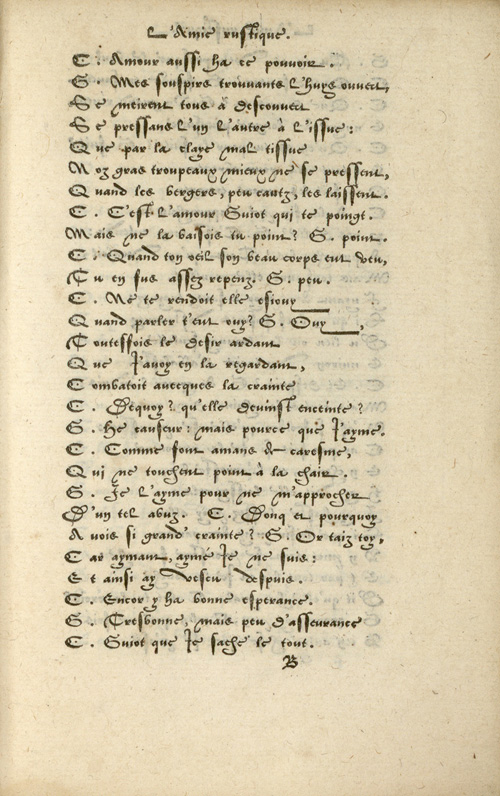 L'Amie rustique.
C. Amour aussi ha ce pouvoir.
G. Mes souspirs trouvants l'huys ouvert,
Se meirent tous à descouvert
Se pressans l'un l'autre à l'issue:
Que par la claye mal tissue
Noz gras troupeaux mieux ne se pressent,
Quand les bergers, peu cautz, les laissent.
C. C'est l'amour Guiot qui te poingt.
Mais ne la baisois tu point? G. point.
C. Quand ton oeil son beau corps eut veu,
Tu en fus assez repeuz. G. peu.
C. Ne te rendoit elle esiouy
Quand parler t'eut ouy? G. Ouy,
Toutesfois le desir ardant
Que j'avoy en la regardant,
Combatoit avecques la crainte
C. Dequoy? qu'elle devinst enceinte?
G. He causeur: mais pource que j'ayme.
C. Comme font amans de caresme,
Qui ne touchent point à la chair.
G. Je l'ayme pour ne m'approcher
D'un tel abuz. C. Donq et pourquoy
Avois si grand' crainte? G. Or taiz toy,
Car aymant, ayme je ne suis:
Et ainsi ay vescu despuis.
C. Encor y ha bonne esperance.
G. Tresbonne, mais peu d'asseurance
C. Guiot que je sache le tout.
B